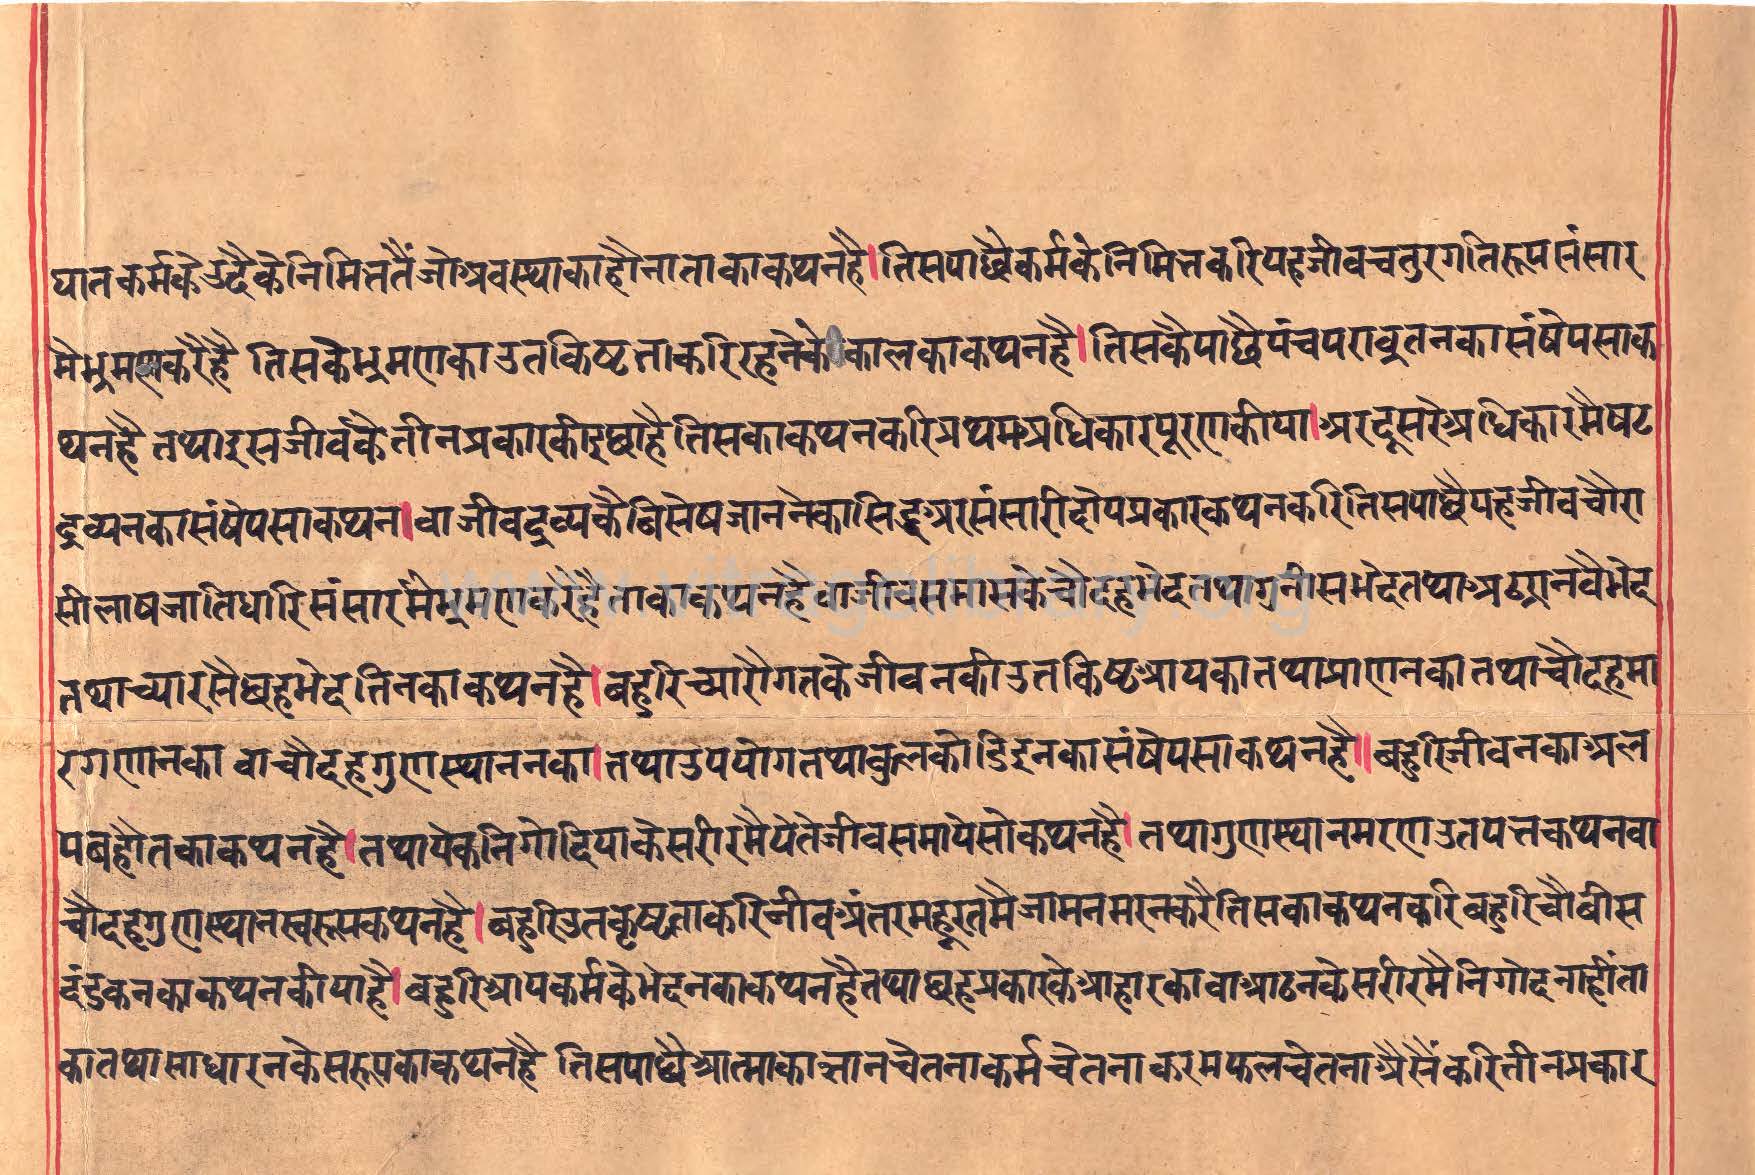 घातकर्मकेउदैकेनिमित्ततैंजोअवस्थाकाहौनाताकाकथनहै।तिसपाछैकर्मकेनिमित्तकरियहजीवचतुरगतिरूपसंसार
मैभ्रमणकरैहै तिसकैभ्रमणकाउतकिष्टताकरिरहनेकेकालकाकथनहै।तिसकैपाछैपंचपरावृतनकासंषेपसाक
थनहै तथाइसजीवकैतीनप्रकारकीइछाहैतिसकाकथनकरिप्रथमअधिकारपूरणकीया।अरदूसरेअधिकारमैषट
द्रव्यनकासंषेपसाकथन।वाजीवद्रव्यकैविसेषजाननेकासिद्धअरसंसारीदोयप्रकारकथनकरितिसपाछैयहजीवचौरा
सीलाषजातिधारिसंसारमैभ्रमणकरैहैताकाकथनहैवाजीवसमासकेचौदहभेदतथागुनीसभेदतथाअठ्यानवैभेद
तथाच्यारसैछहभेदतिनकाकथनहै।बहुरिच्यारौगतकेजीवनकीउतकिष्टआयकातथाप्राणनकातथाचौदहमा
रगणानका वाचौदहगुणस्थाननका।तथाउपयोगतथाकुलकोडिइनकासंषेपसाकथनहै॥बहुरिजीवनकाअल
पबहौतकाकथनहै।तथायेकनिगोदियाकेसरीरमैयेतेजीवसमायेसोकथनहै।तथागुणस्थानमरणउतपत्तकथनवा
चौदहगुणस्थानस्वरूपकथनहै।बहुरिउतकृष्टताकरिजीवअंतरमहूरतमैजामनमरनकरैतिसकाकथनकरिबहुरिचौवीस
दंडकनकाकथनकीयाहै।बहुरिआयकर्मकेभेदनकाकथनहैतथाछहप्रकारकेआहारकावाआठनकेसरीरमैनिगोदनाहींता
कातथासाधारनकेसरूपकाकथनहै तिसपाछैआत्माकाज्ञानचेतनाकर्मचेतनाकरमफलचेतनाअैसैंकरितीनप्रकार
www.vitragelibrary.org